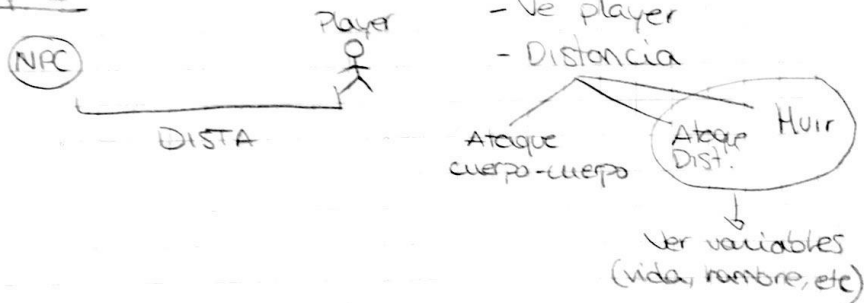 Player
NPC
DISTA
- Ve player
- Distancia
Ataque
cuerpo-cuerpo
Ataque
Dist.
Huir
Ver variables
(vida, hambre, etc)